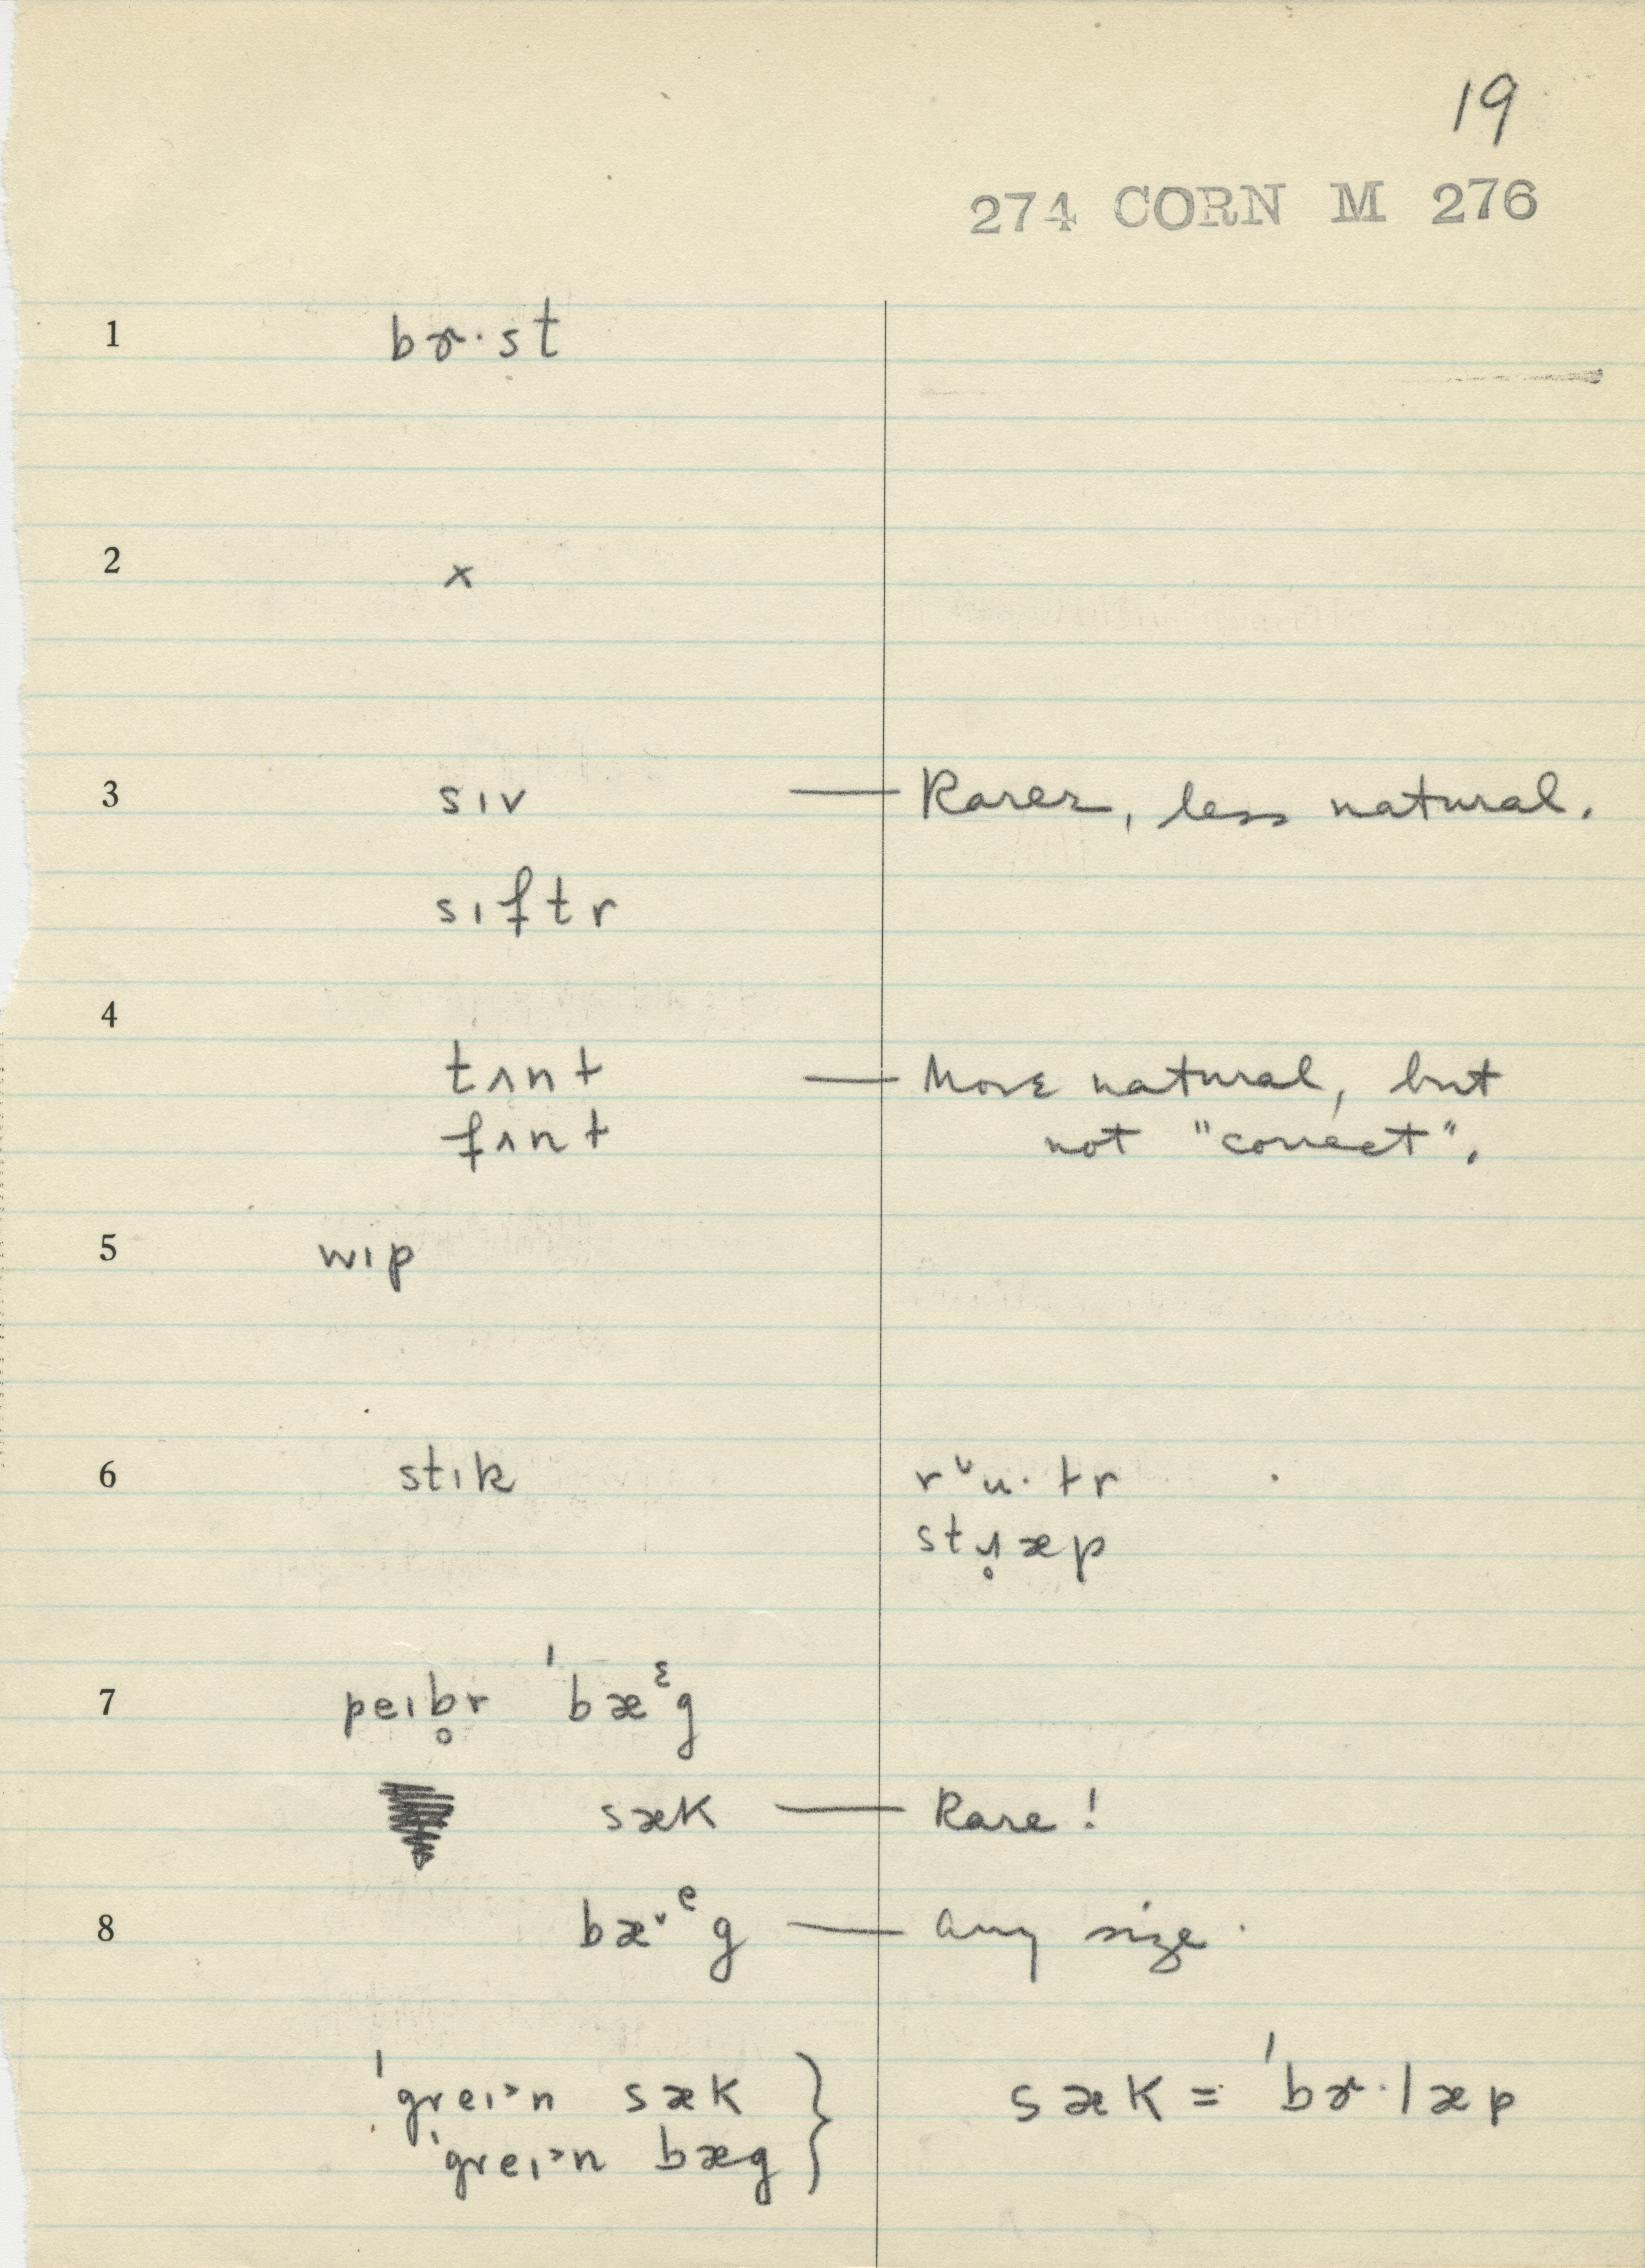 19
274 CORN M 276
1 bɚ·st
2 x
3 sɪv — Rarer, less natural.
sɪftr
4
tʌnt — More natural, but
fʌnt not "correct".
5 wɪp
6 stɪk rᵛu·tr
stɹ̥æp
7 peɪb̥r ˈbæᵋg
sæk — Rare!
8 bæ˅ᵉg — any size.
ˈgreɪ˃n sæk } sæk = ˈbɚ·læp
ˈgreɪ˃n bæg